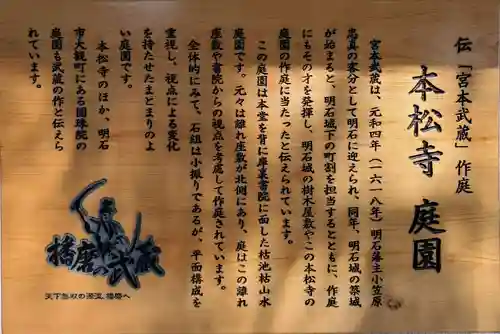 伝「宮本武蔵」作庭
本松寺 庭園
宮本武蔵は、元和四年(一六一八年)明石藩主小笠原
忠真の客分として明石に迎えられ、同年、明石城の築城
が始まると、明石城下の町割を担当するとともに、作庭
にもその才を発揮し、明石城の樹木屋敷やこの本松寺の
庭園の作庭に当たったと伝えられています。
この庭園は本堂を背に庫裏書院に面した枯池枯山水
庭園です。元々は離れ座敷が北側にあり、庭はこの離れ
座敷や書院からの視点を考慮して作庭されています。
全体的にみて、石組は小振りであるが、平面構成を
重視し、視点による変化
を持たせたまとまりのよ
い庭園です。
本松寺のほか、明石
市大観町にある圓珠院の
庭園も武蔵の作と伝えら
れています。
播磨の武蔵
天下無双の源流、播磨へ